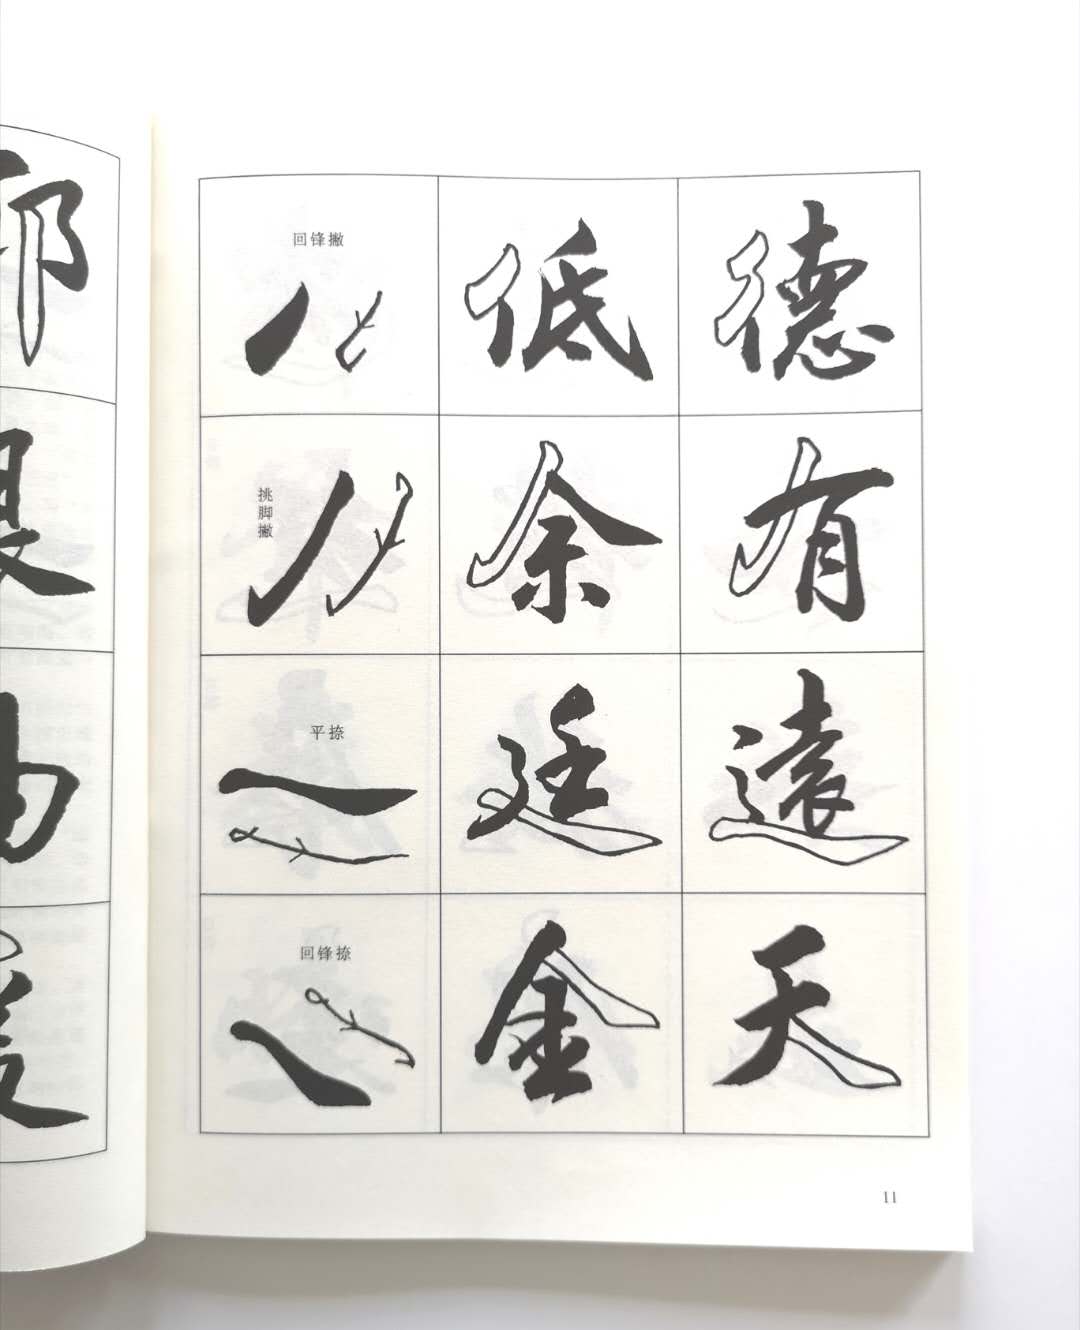 回锋撇
低
德
挑脚撇
余
有
平捺
廷
遠
回锋捺
金
天
11